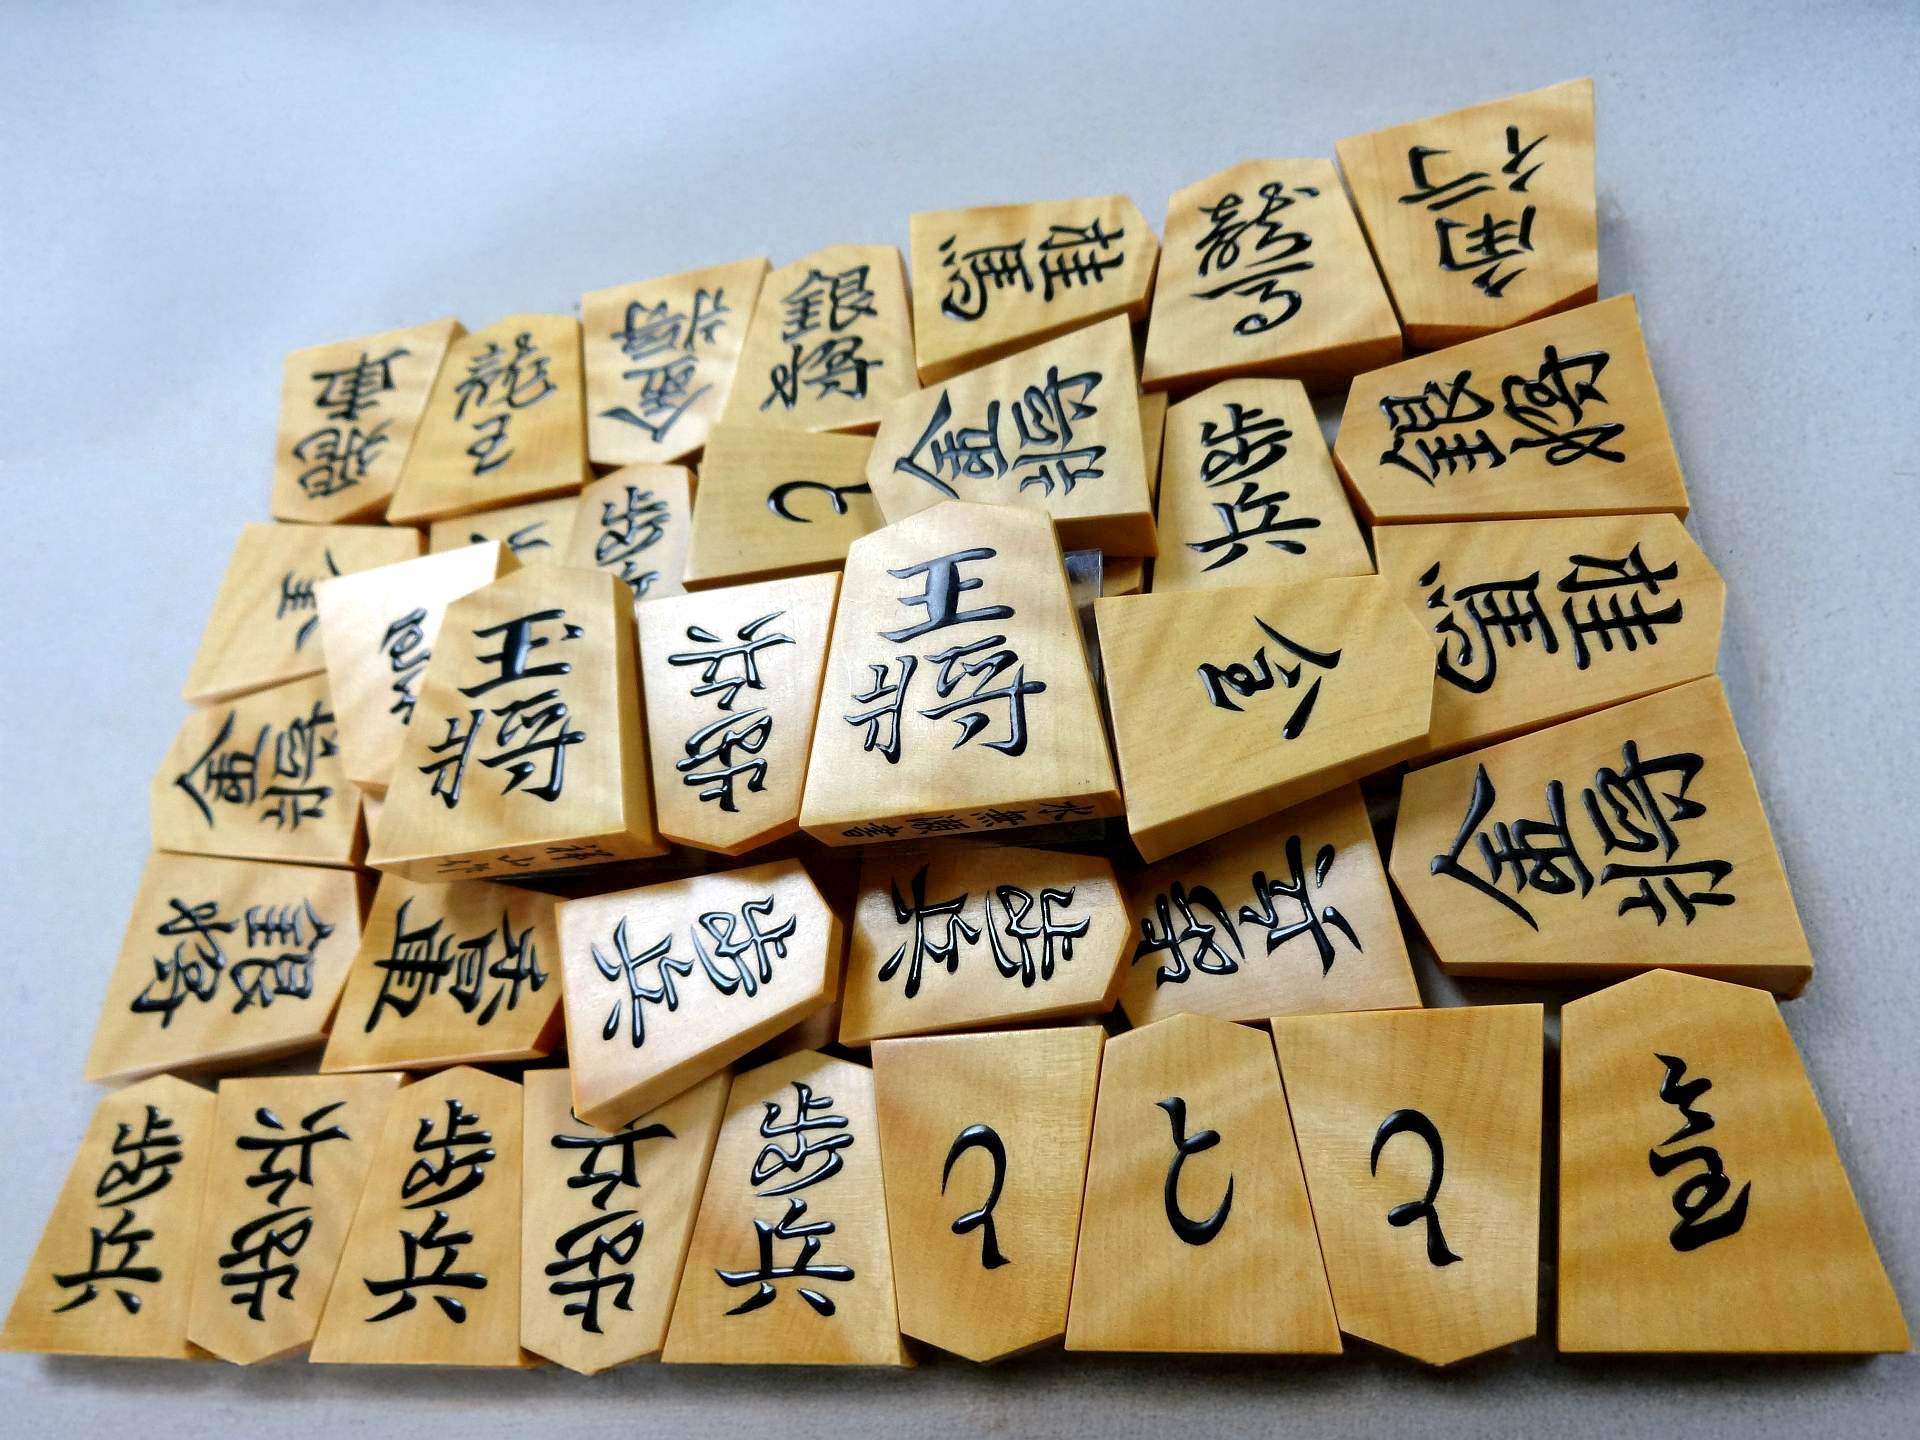 香車
飛車
龍王
金将
銀将
桂馬
龍馬
角行
と
金将
歩兵
銀将
歩
桂馬
金将
玉将
歩兵
王将
水無瀬書
金
金将
銀将
香車
歩兵
歩兵
歩兵
歩兵
歩兵
歩兵
歩兵
歩兵
と
と
と